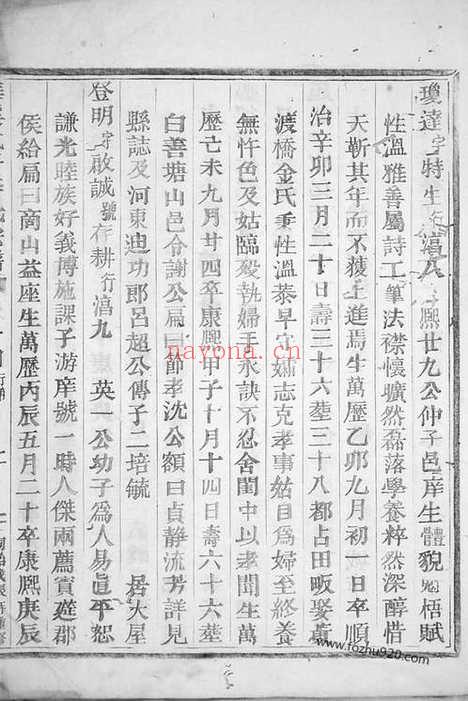 瓊達字特生行㵯八 熙廿九公仲子邑庠生體貌魁梧賦
性溫雅善屬詩工筆法襟懷曠然磊落學養粹然深醇惜
天靳其年而不獲上進焉生萬歷乙卯九月初一日卒順
治辛卯三月二十日壽三十六塟三十八都占田畈娶薰
渡橋金氏秉性溫恭早守嫠志克孝事姑目為婦至終養
無忤色及姑臨歿執婦手永訣不忍舍閭中以孝聞生萬
歷己未九月廿四卒康熙甲子十月十四日壽六十六塟
白善塘山邑令謝公扁曰節孝沈公額曰貞靜流芳詳見
縣誌及河東迪功郎呂超公傳子二培毓 居大屋
登明字啟誠號存耕行㵯九 英一公幼子為人易直平恕
謙光睦族好義博施課子游庠號一時人傑兩薦賓筵郡
侯給扁曰商山益座生萬歷丙辰五月二十卒康熙庚辰
nayona.cn
www.fozhu920.com